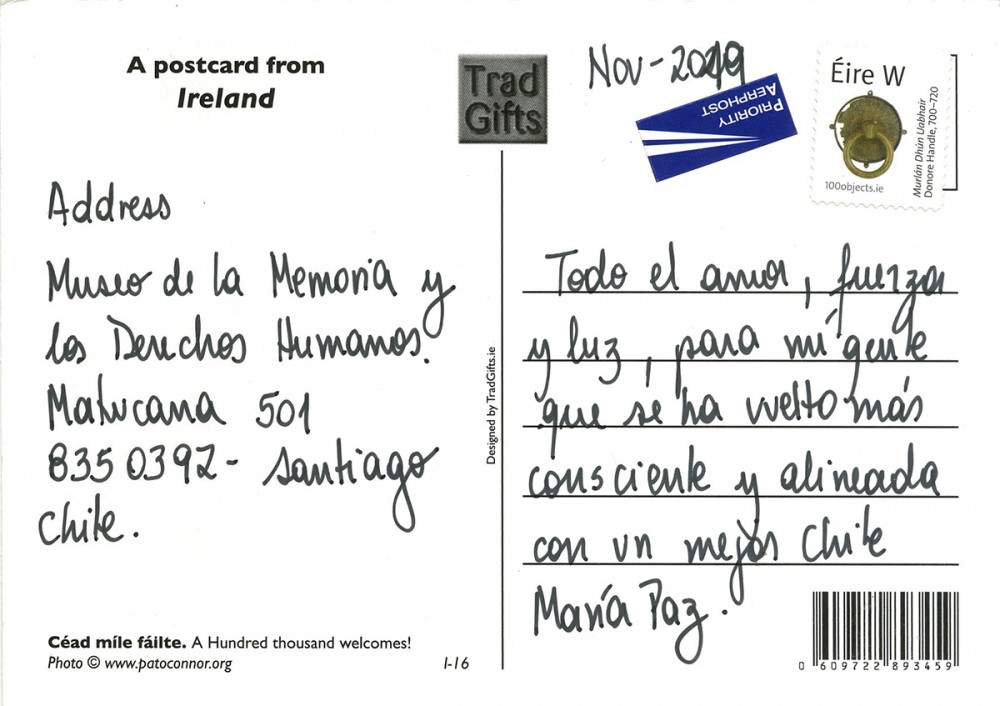 A postcard from
Ireland
Trad
Gifts
Nov-2019
PRIORITY
AERPHOST
Éire W
Murlán Dhún Uabhair
Donore Handle, 700–720
100objects.ie
Address
Museo de la Memoria y
los Derechos Humanos.
Matucana 501
8350392- Santiago
Chile.
Designed by TradGifts.ie
Todo el amor, fuerza
y luz, para mi gente
que sé ha vuelto más
consciente y alineada
con un mejor Chile
María Paz.
Céad míle fáilte. A Hundred thousand welcomes!
Photo © www.patoconnor.org
I-16
0 609722 893459